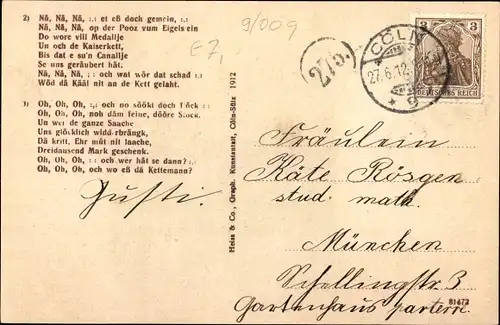 2) Nä, Nä, Nä, :,: et eß doch gemein, :,:
Nä, Nä, Nä, op der Pooz vum Eigels ein
Do wore vill Medallje
Un och de Kaiserkett,
Bis dat e su'n Canallje
Se uns geräubert hät.
Nä, Nä, Nä, :: och wat wör dat schad :,:
Wöd dä Kääl nit an de Kett gelaht.
3) Oh, Oh, Oh, :,: och no söökt doch
Oh, Oh, Oh, noh däm feine, dööre
Un wer de ganze Saache
Uns glöcklich widd·rbrängk,
Dä kritt, Ehr müt nit laache,
Dreidausend Mark geschenk.
Oh, Oh, Oh, :: och wer hät se dann? :,:
Oh, Oh, Oh, och wo eß dä Kettemann?
Heiss & Co., Graph. Kunstanstalt, Cöln-Sülz 1912
E7,
9/009
275.
CÖLN
27.6.12.
* 9
3 3
DEUTSCHES REICH
Fräulein
Käte Rösgen
stud. math.
München
Schellingstr. 3
Gartenhaus parterre.
Justi.
81672